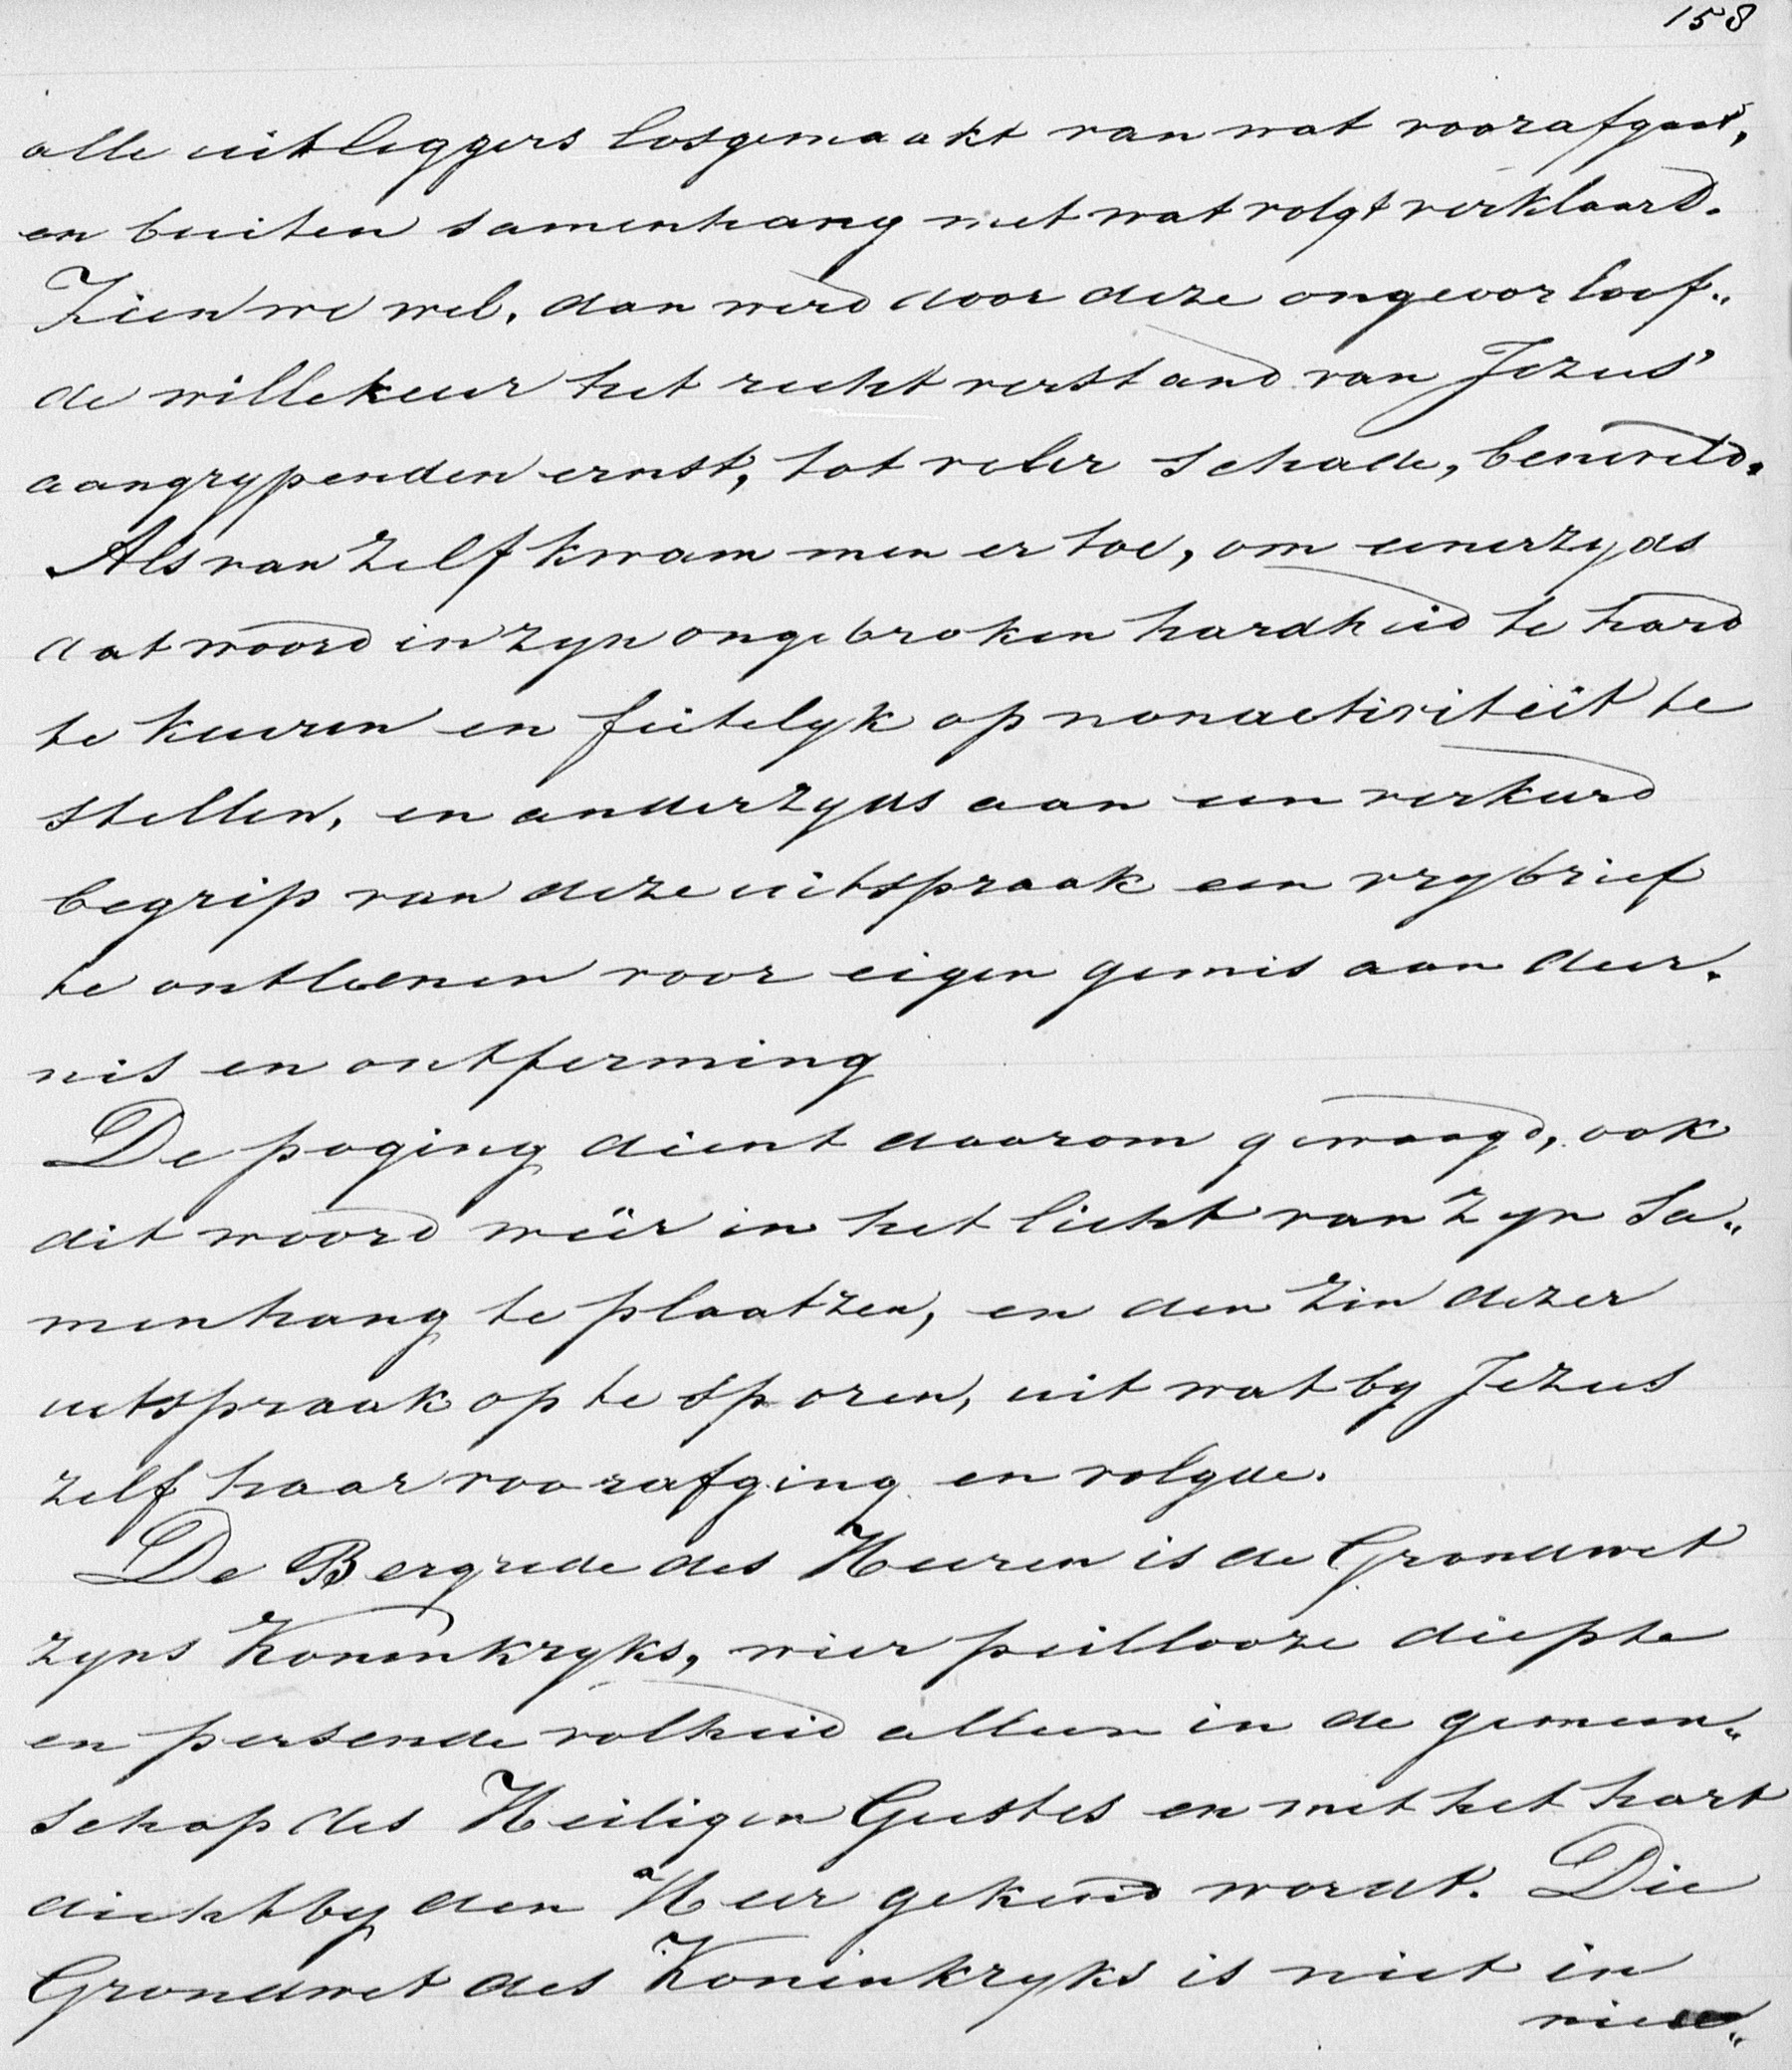 158
alle uitleggers losgemaakt van wat voorafgaat,
en buiten samenhang met wat volgt verklaard.
Zien we wel, dan werd door deze ongeoorloof„
de willekeur het recht verstand van Jezus'
aangrypenden ernst, tot veler schade, beneveld.
Als van zelf kwam men er toe, om eenerzyds
dat woord in zyn ongebroken hardheid te hard
te keuren en feitelyk op nonactiviteit te
stellen, en anderzyds aan een verkeerd
begrip van deze uitspraak een vrybrief
te ontleenen voor eigen gemis aan deer„
nis en ontferming
De poging dient daarom gewaagd, ook
dit woord weêr in het licht van zyn sa„
menhang te plaatzen, en den zin dezer
uitspraak op te sporen, uit wat by Jezus
zelf haar voorafging en volgde.
De Bergrede des Heeren is de Grondwet
zyns Koninkryks, wier peillooze diepte
en persende volheid alleen in de gemeen„
schap des Heiligen Geestes en met het hart
dicht by den Heer gekend wordt. Die
Grondwet des Koninkryks is niet in